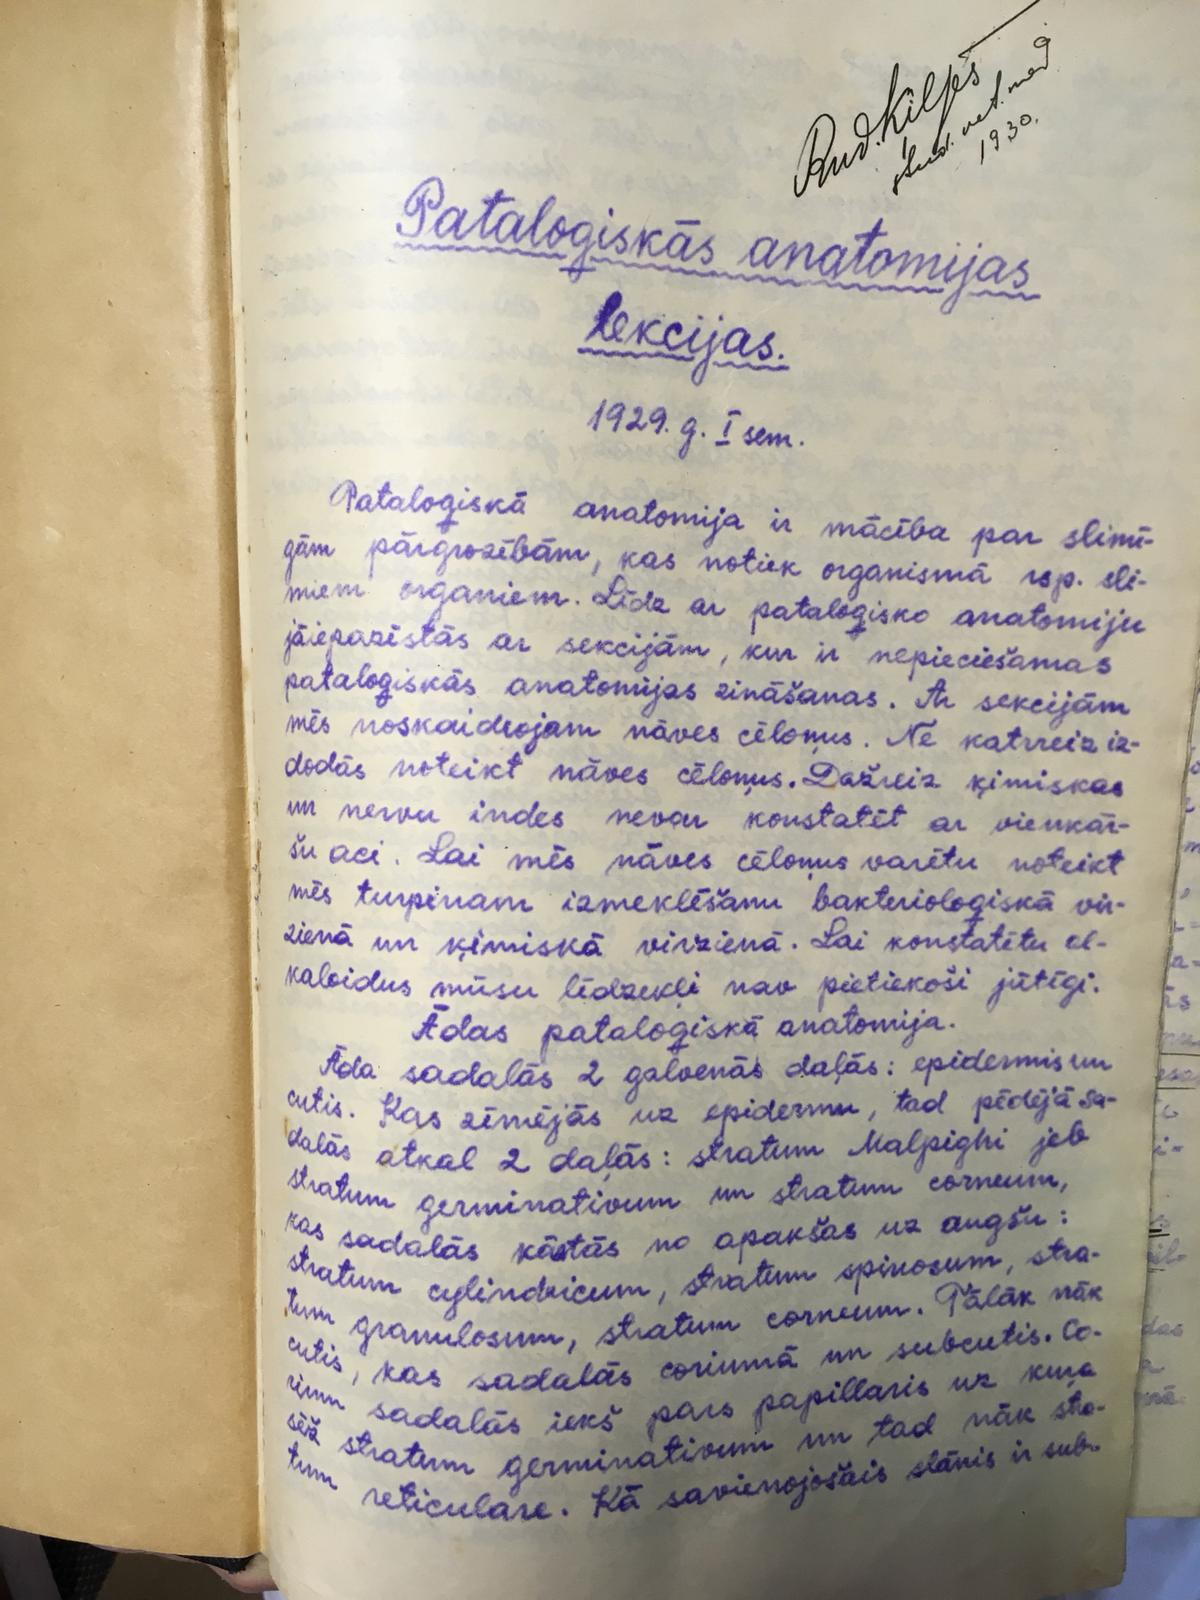 Rud. Ķilpis
stud. vet. med
1930.
Pataloģiskās anatomijas
lekcijas.
1929. g. I sem.
Pataloģiskā anatomija ir mācība par slimī-
gām pārgrozībām, kas notiek organismā rsp. sli-
miem orgāniem. Līdz ar pataloģisko anatomiju
jāiepazīstās ar sekcijām, kur ir nepieciešamas
pataloģiskās anatomijas zināšanas. Ar sekcijām
mēs noskaidrojam nāves cēloņus. Ne katrreiz iz-
dodās noteikt nāves cēloņus. Dažreiz ķīmiskas
un nervu indes nevar konstatēt ar vienkār-
šu aci. Lai mēs nāves cēloņus varētu noteikt
mēs turpinam izmeklēšanu bakterioloģiskā vir-
zienā un ķīmiskā virzienā. Lai konstatētu al-
kaloidus mūsu līdzekļi nav pietiekoši jūtīgi.
Ādas pataloģiskā anatomija.
Āda sadalās 2 galvenās daļās: epidermis un
cutis. Kas zīmējās uz epidermu, tad pēdējā sa-
dalās atkal 2 daļās: stratum Malpighi jeb
stratum germinativum un stratum corneum,
kas sadalās kārtās no apakšas uz augšu:
stratum cylindricum, stratum spinosum, stra-
tum granulosum, stratum corneum. Tālāk nāk
cutis, kas sadalās coriumā un subcutis. Co-
rium sadalās iekš pars papillaris uz kura
sēž stratum germinativum un tad nāk stra-
tum reticulare. Kā savienojošais slānis ir sub-